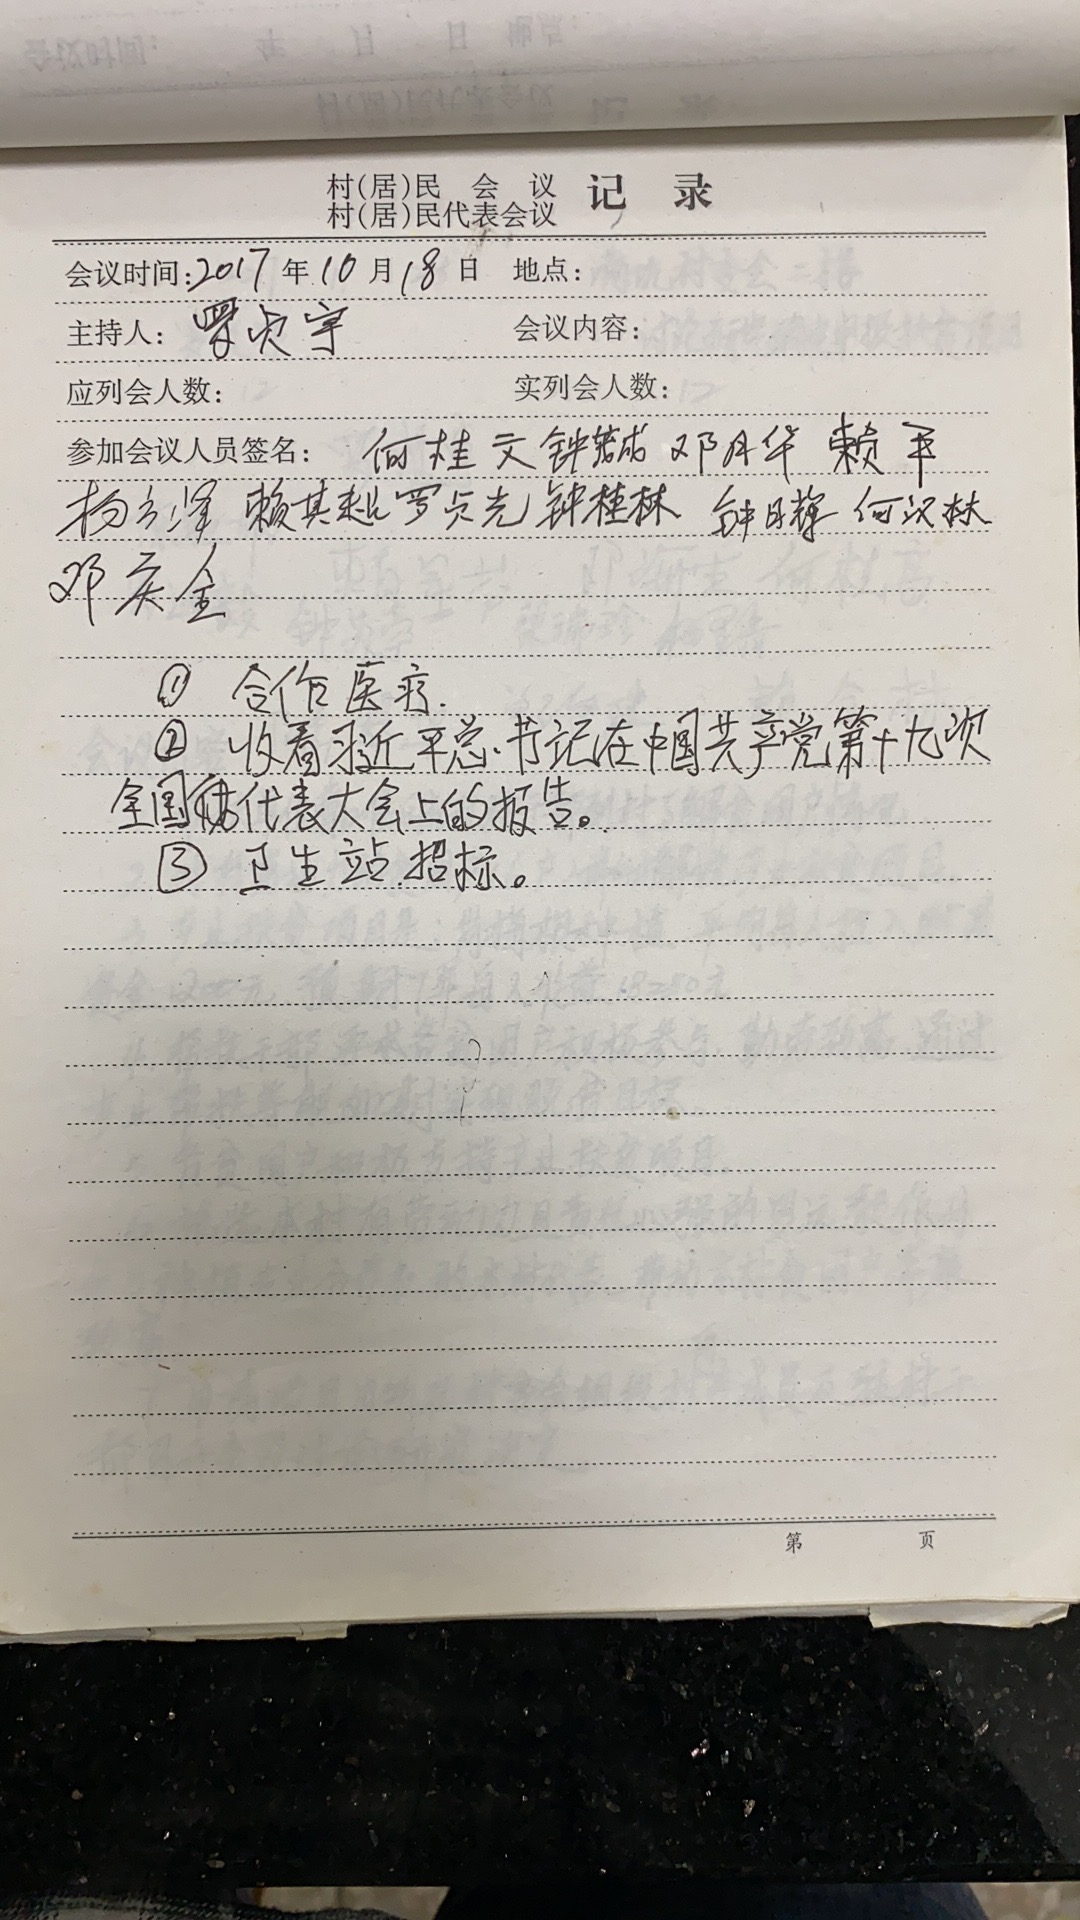 村(居)民 会 议
村(居)民代表会议 记 录
会议时间:2017年10月18日 地点:
主持人: 罗贞宇 会议内容:
应列会人数: 实列会人数:
参加会议人员签名: 何桂文 钟 邓月华 赖平
杨立泽 赖其 罗贞光 钟桂林 钟日辉 何汉林
邓庆金
① 合作医疗.
② 收看习近平总书记在中国共产党第十九次
全国代表大会上的报告。
③ 卫生站招标。
第 页